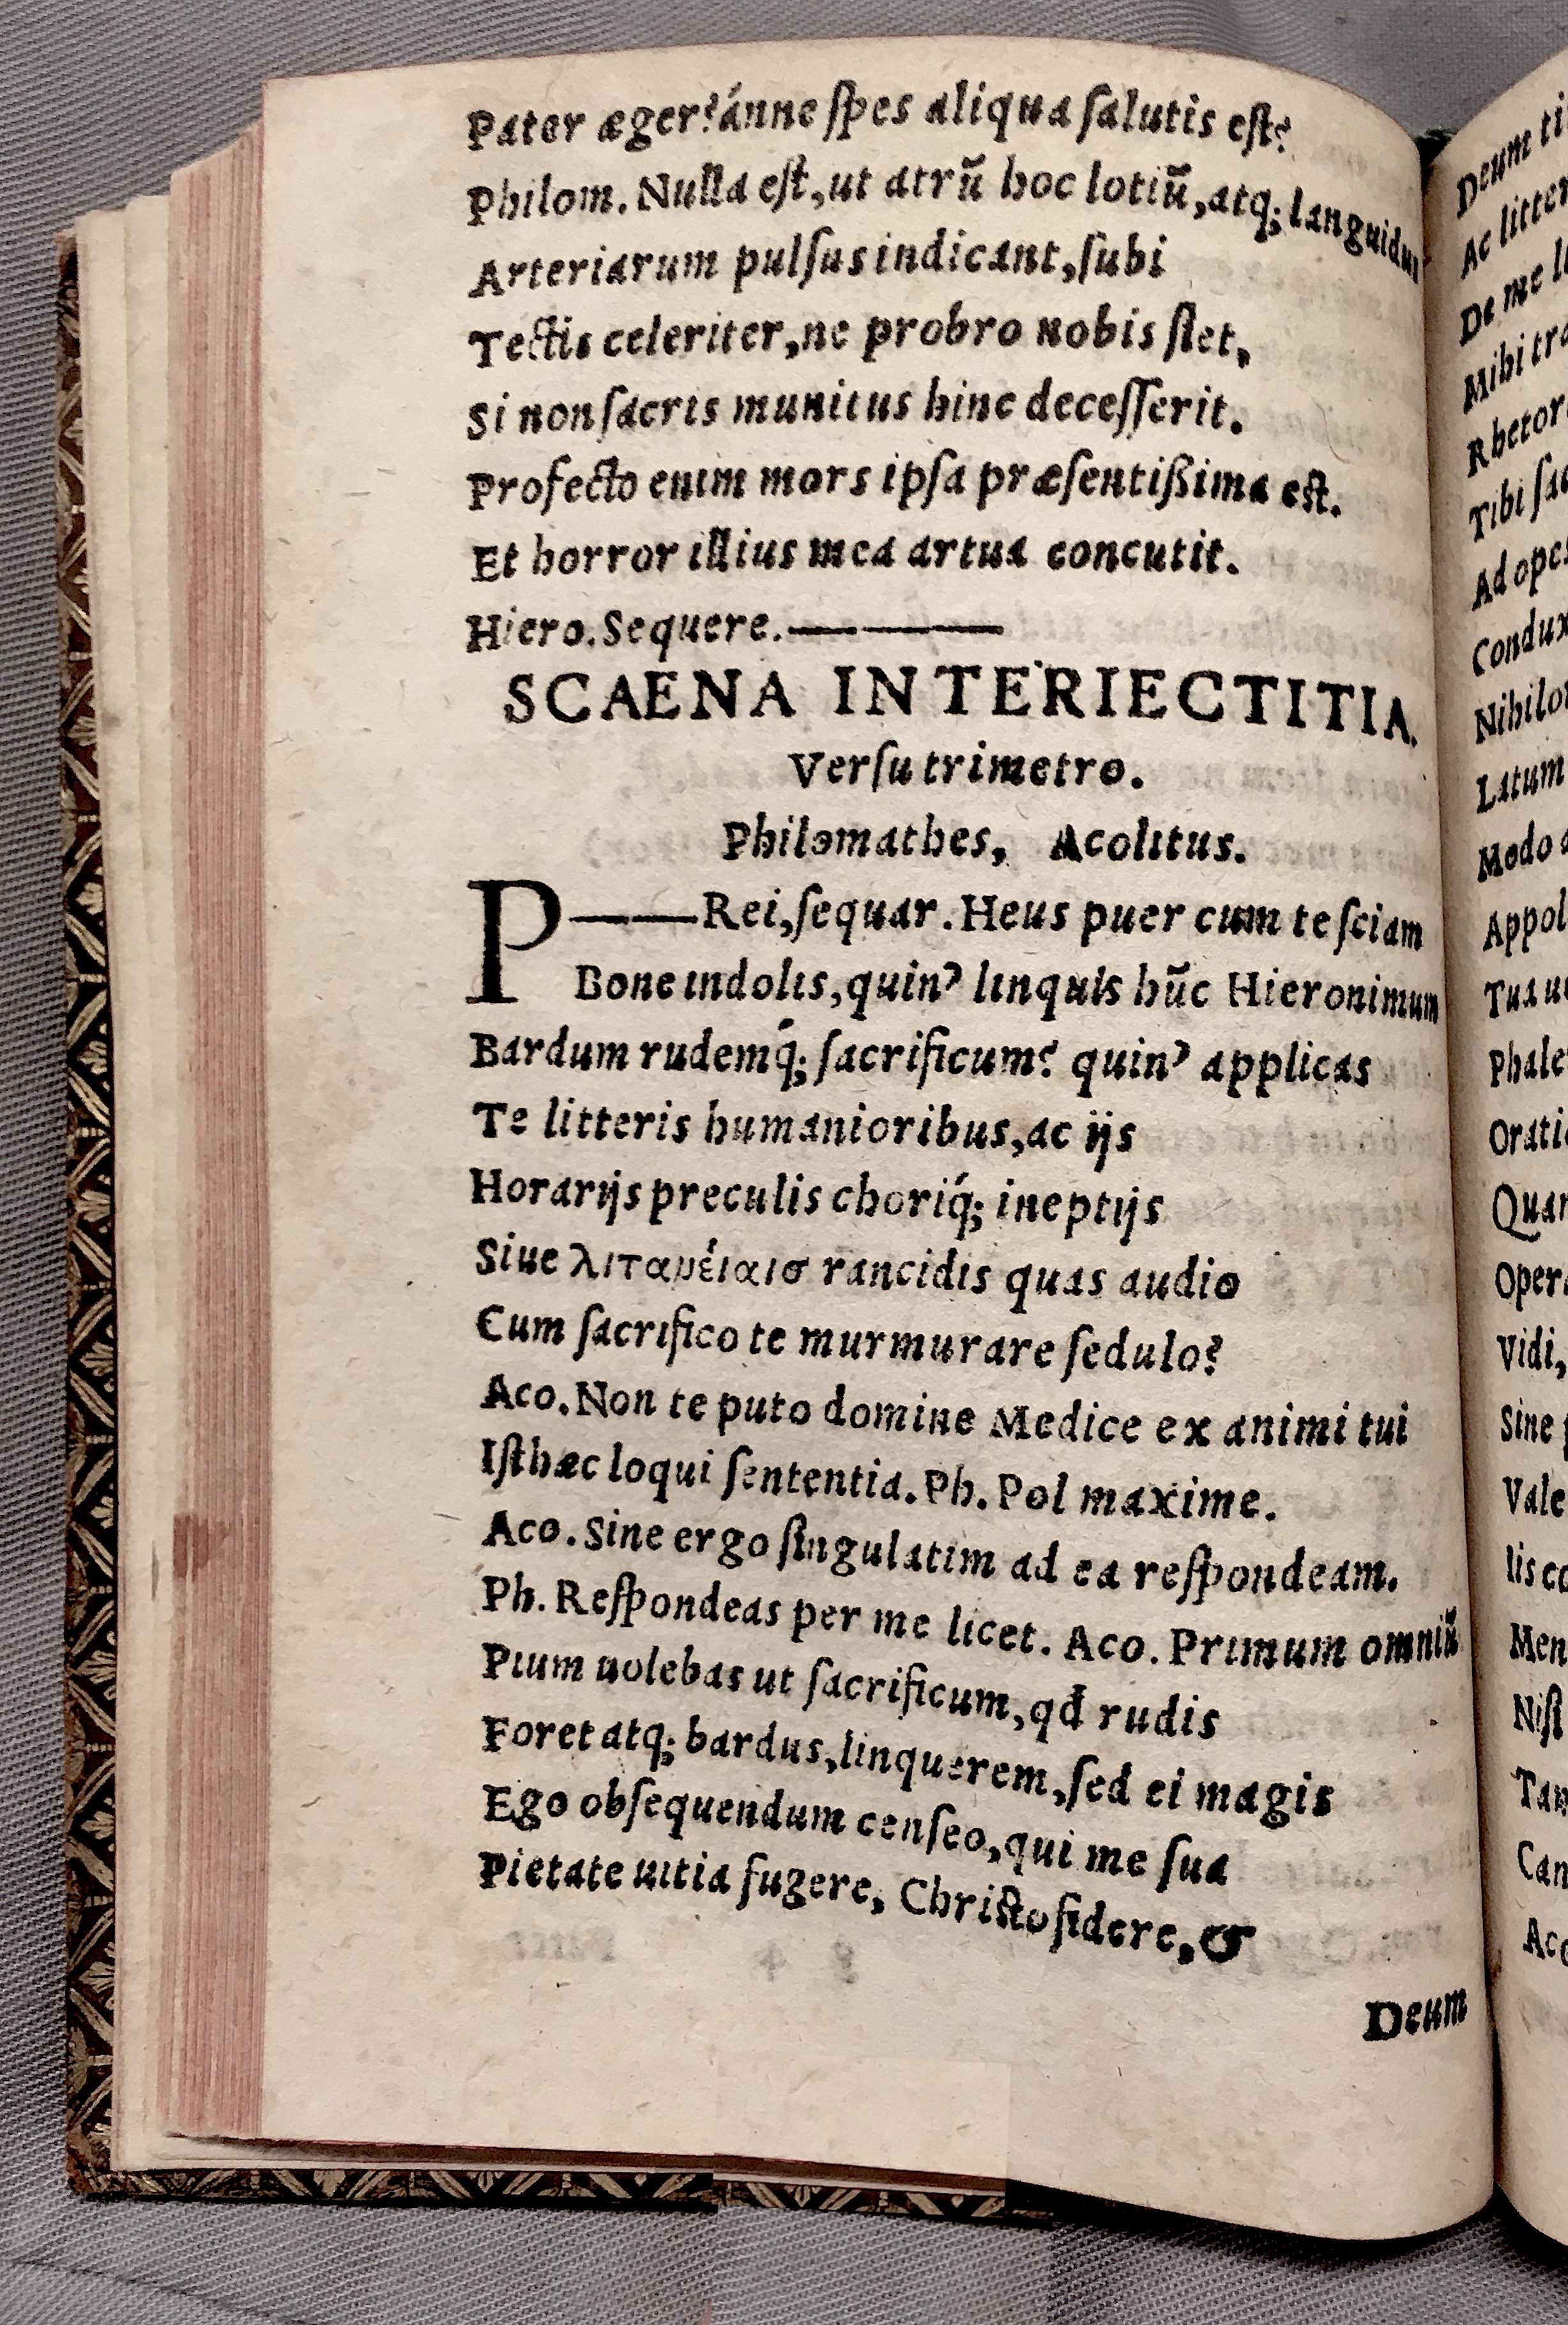 Pater æger? ánne ſpes aliqua ſalutis eſt?
Philom. Nulla eſt, ut atrũ hoc lotiũ, atq; languidus
Arteriarum pulſus indicant, ſubi
Tectis celeriter, ne probro nobis ſiet,
Si non ſacris munitus hinc deceſſerit.
Profecto enim mors ipſa præſentißima eſt.
Et horror illius mea artua concutit.
Hiero. Sequere. ———
SCAENA INTERIECTITIA.
Verſu trimetro.
Philomathes, Acolitus.
P——Rei, ſequar. Heus puer cum te ſciam
Bone indolis, quin' linquis hũc Hieronimum
Bardum rudemq́; ſacrificum? quin' applicas
Te litteris humanioribus, ac ijs
Horarijs preculis choriq́; ineptijs
Siue λιτανέιαισ rancidis quas audio
Cum ſacrifico te murmurare ſedulo?
Aco. Non te puto domine Medice ex animi tui
Iſthæc loqui ſententia. Ph. Pol maxime.
Aco. Sine ergo ſingulatim ad ea reſpondeam.
Ph. Reſpondeas per me licet. Aco. Primum omniũ
Pium uolebas ut ſacrificum, qđ rudis
Foret atq; bardus, linquerem, ſed ei magis
Ego obſequendum cenſeo, qui me ſua
Pietate uitia fugere, Chriſto fidere, &
Deum
Deum ti
Ac litter
De me
Mihi tra
Rhetor
Tibi
Ad
Condux
Nihilo
Latum
Modo
Appol
Tua
Phale
Orati
Quar
Oper
Vidi,
Sine
Vale
Iis
Men
Niſi
Tan
Can
Aco